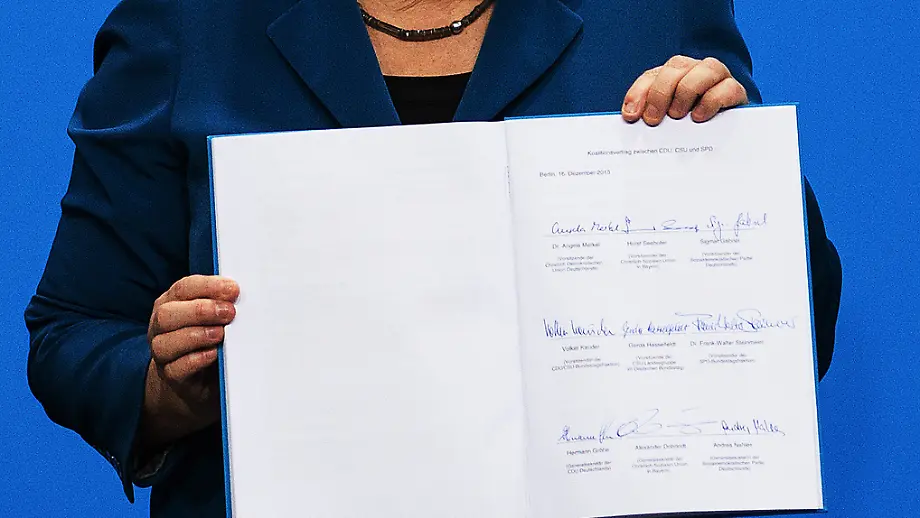 Koalitionsvertrag zwischen CDU, CSU und SPD
Berlin, 16. Dezember 2013
Angela Merkel
Dr. Angela Merkel Horst Seehofer Sigmar Gabriel
(Vorsitzende der (Vorsitzende der (Vorsitzende der
Christlich Demokratischen Christlich Sozialen Union Sozialdemokratischen Partei
Union Deutschlands) in Bayern) Deutschlands)
Volker Kauder Gerda Hasselfeldt
Volker Kauder Gerda Hasselfeldt Dr. Frank-Walter Steinmeier
(Vorsitzende der (Vorsitzende der (Vorsitzende der
CDU/CSU-Bundestagsfraktion) CSU-Landesgruppe SPD-Bundestagsfraktion)
im Deutschen Bundestag)
Hermann Gröhe Alexander Dobrindt Andrea Nahles
(Generalsekretär der (Generalsekretär der (Generalsekretärin der
CDU Deutschlands) Christlich Sozialen Union Sozialdemokratischen Partei
in Bayern) Deutschlands)